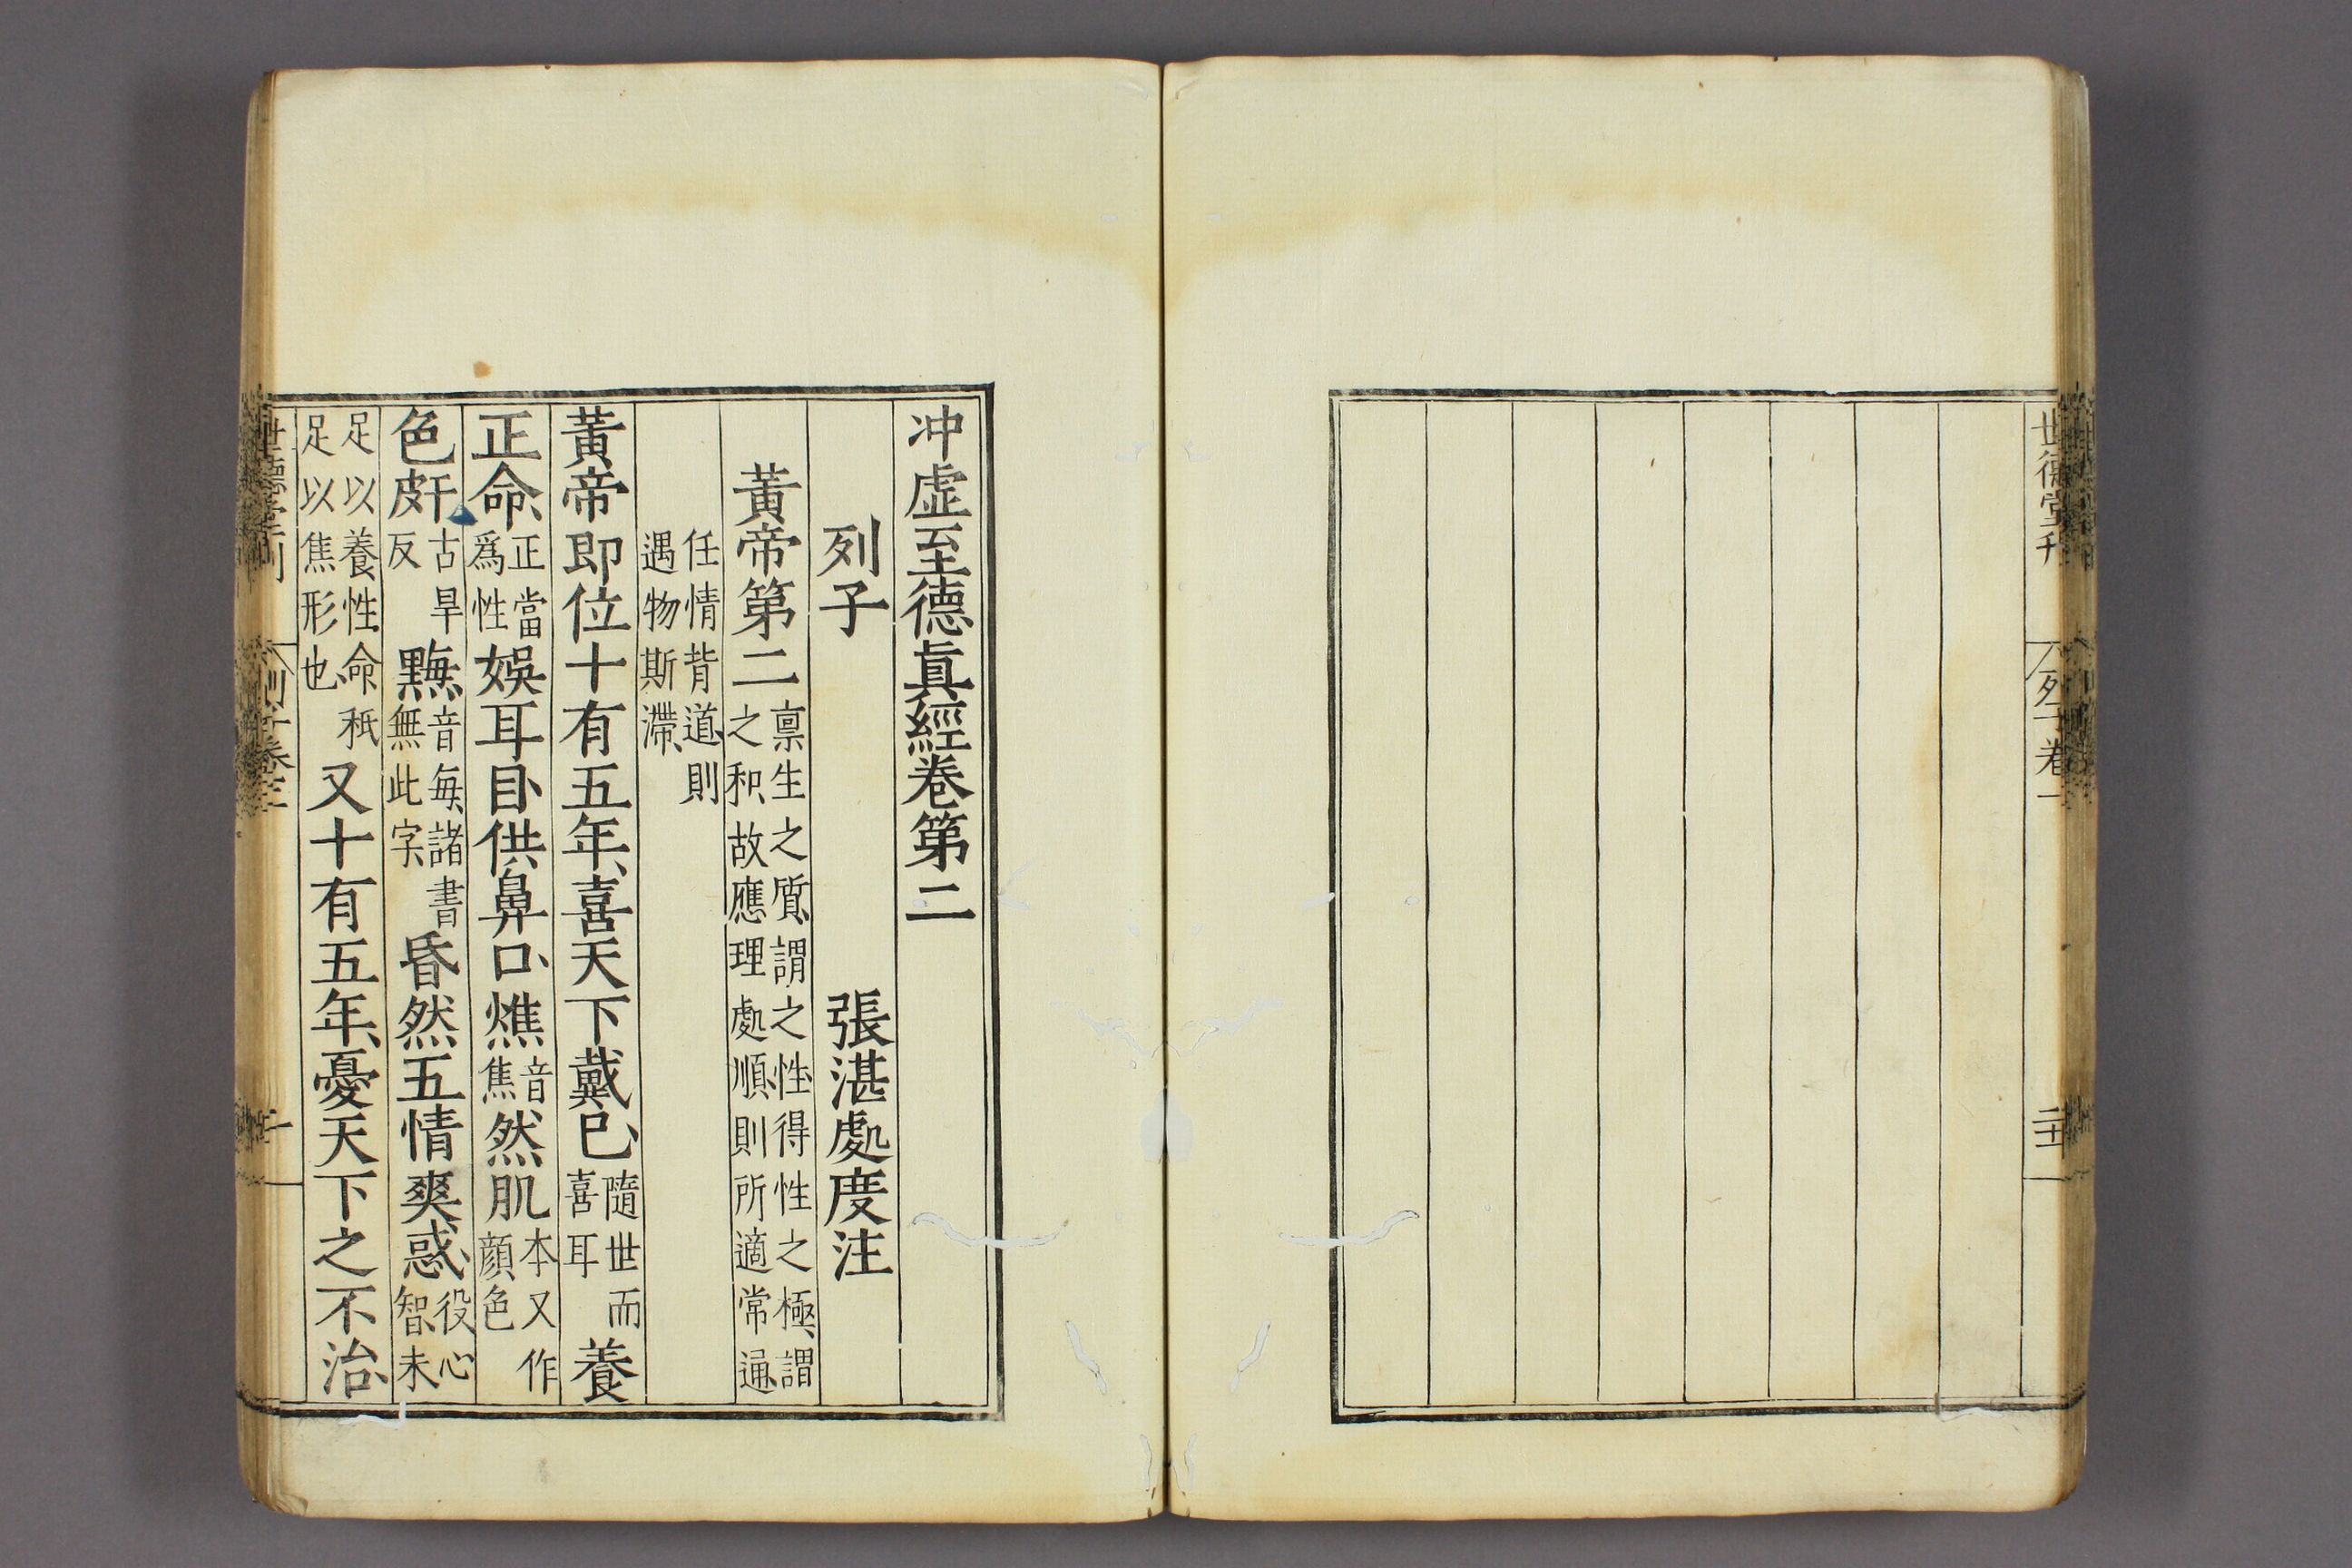 世德堂刊
列子卷一
冲虛至德眞經卷第二
列子 張湛處度注
黃帝第二 稟生之質謂之性得性之極謂
之和故應理處順則所適常通
任情背道則
遇物斯滯
黃帝即位十有五年喜天下戴已 隨世而
喜耳 養
正命 正當
爲性 娛耳目供鼻口燋 音
焦 然肌 本又作
顔色
色皯 古旱
反 䵟 音每諸書
無此字 昏然五情爽惑 役心
智未
足以養性命秖
足以焦形也 又十有五年憂天下之不治
世德堂刊
列子卷二
一